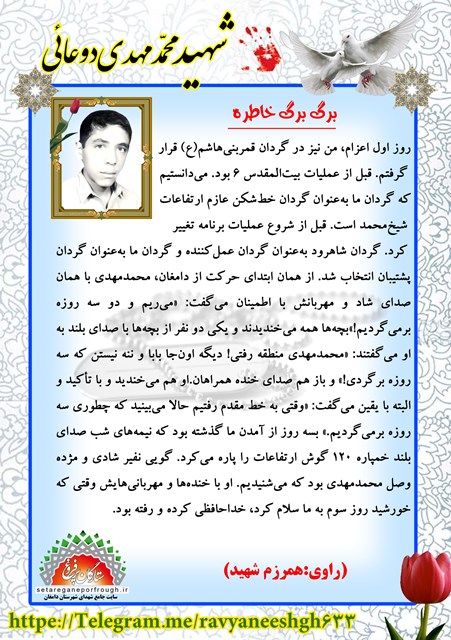 شهید محمّد مهدی دوعائی
برگ برگ خاطره
روز اول اعزام، من نیز در گردان قمربنی‌هاشم(ع) قرار
گرفتم. قبل از عملیات بیت‌المقدس ۶ بود. می‌دانستیم
که گردان ما به‌عنوان گردان خط‌شکن عازم ارتفاعات
شیخ‌محمد است. قبل از شروع عملیات برنامه تغییر
کرد. گردان شاهرود به‌عنوان گردان عمل‌کننده و گردان ما به‌عنوان گردان
پشتیبان انتخاب شد. از همان ابتدای حرکت از دامغان، محمدمهدی با همان
صدای شاد و مهربانش با اطمینان می‌گفت: «می‌ریم و دو سه روزه
برمی‌گردیم!»بچه‌ها همه می‌خندیدند و یکی دو نفر از بچه‌ها با صدای بلند به
او می‌گفتند: «محمدمهدی منطقه رفتی! دیگه اون‌جا بابا و ننه نیستن که سه
روزه برگردی!» و باز هم صدای خنده همراهان.او هم می‌خندید و با تأکید و
البته با یقین می‌گفت: «وقتی به خط مقدم رفتیم حالا می‌بینید که چطوری سه
روزه برمی‌گردیم.» بسه روز از آمدن ما گذشته بود که نیمه‌های شب صدای
بلند خمپاره ۱۲۰ گوش ارتفاعات را پاره می‌کرد. گویی نفیر شادی و مژده
وصل محمدمهدی بود که می‌شنیدیم. او با خنده‌ها و مهربانی‌هایش وقتی که
خورشید روز سوم به ما سلام کرد، خداحافظی کرده و رفته بود.
(راوی:همرزم شهید)
ستارگان پرفروغ
setareganeporfrough.ir
سایت جامع شهدای شهرستان دامغان
https://Telegram.me/ravyaneeshgh633